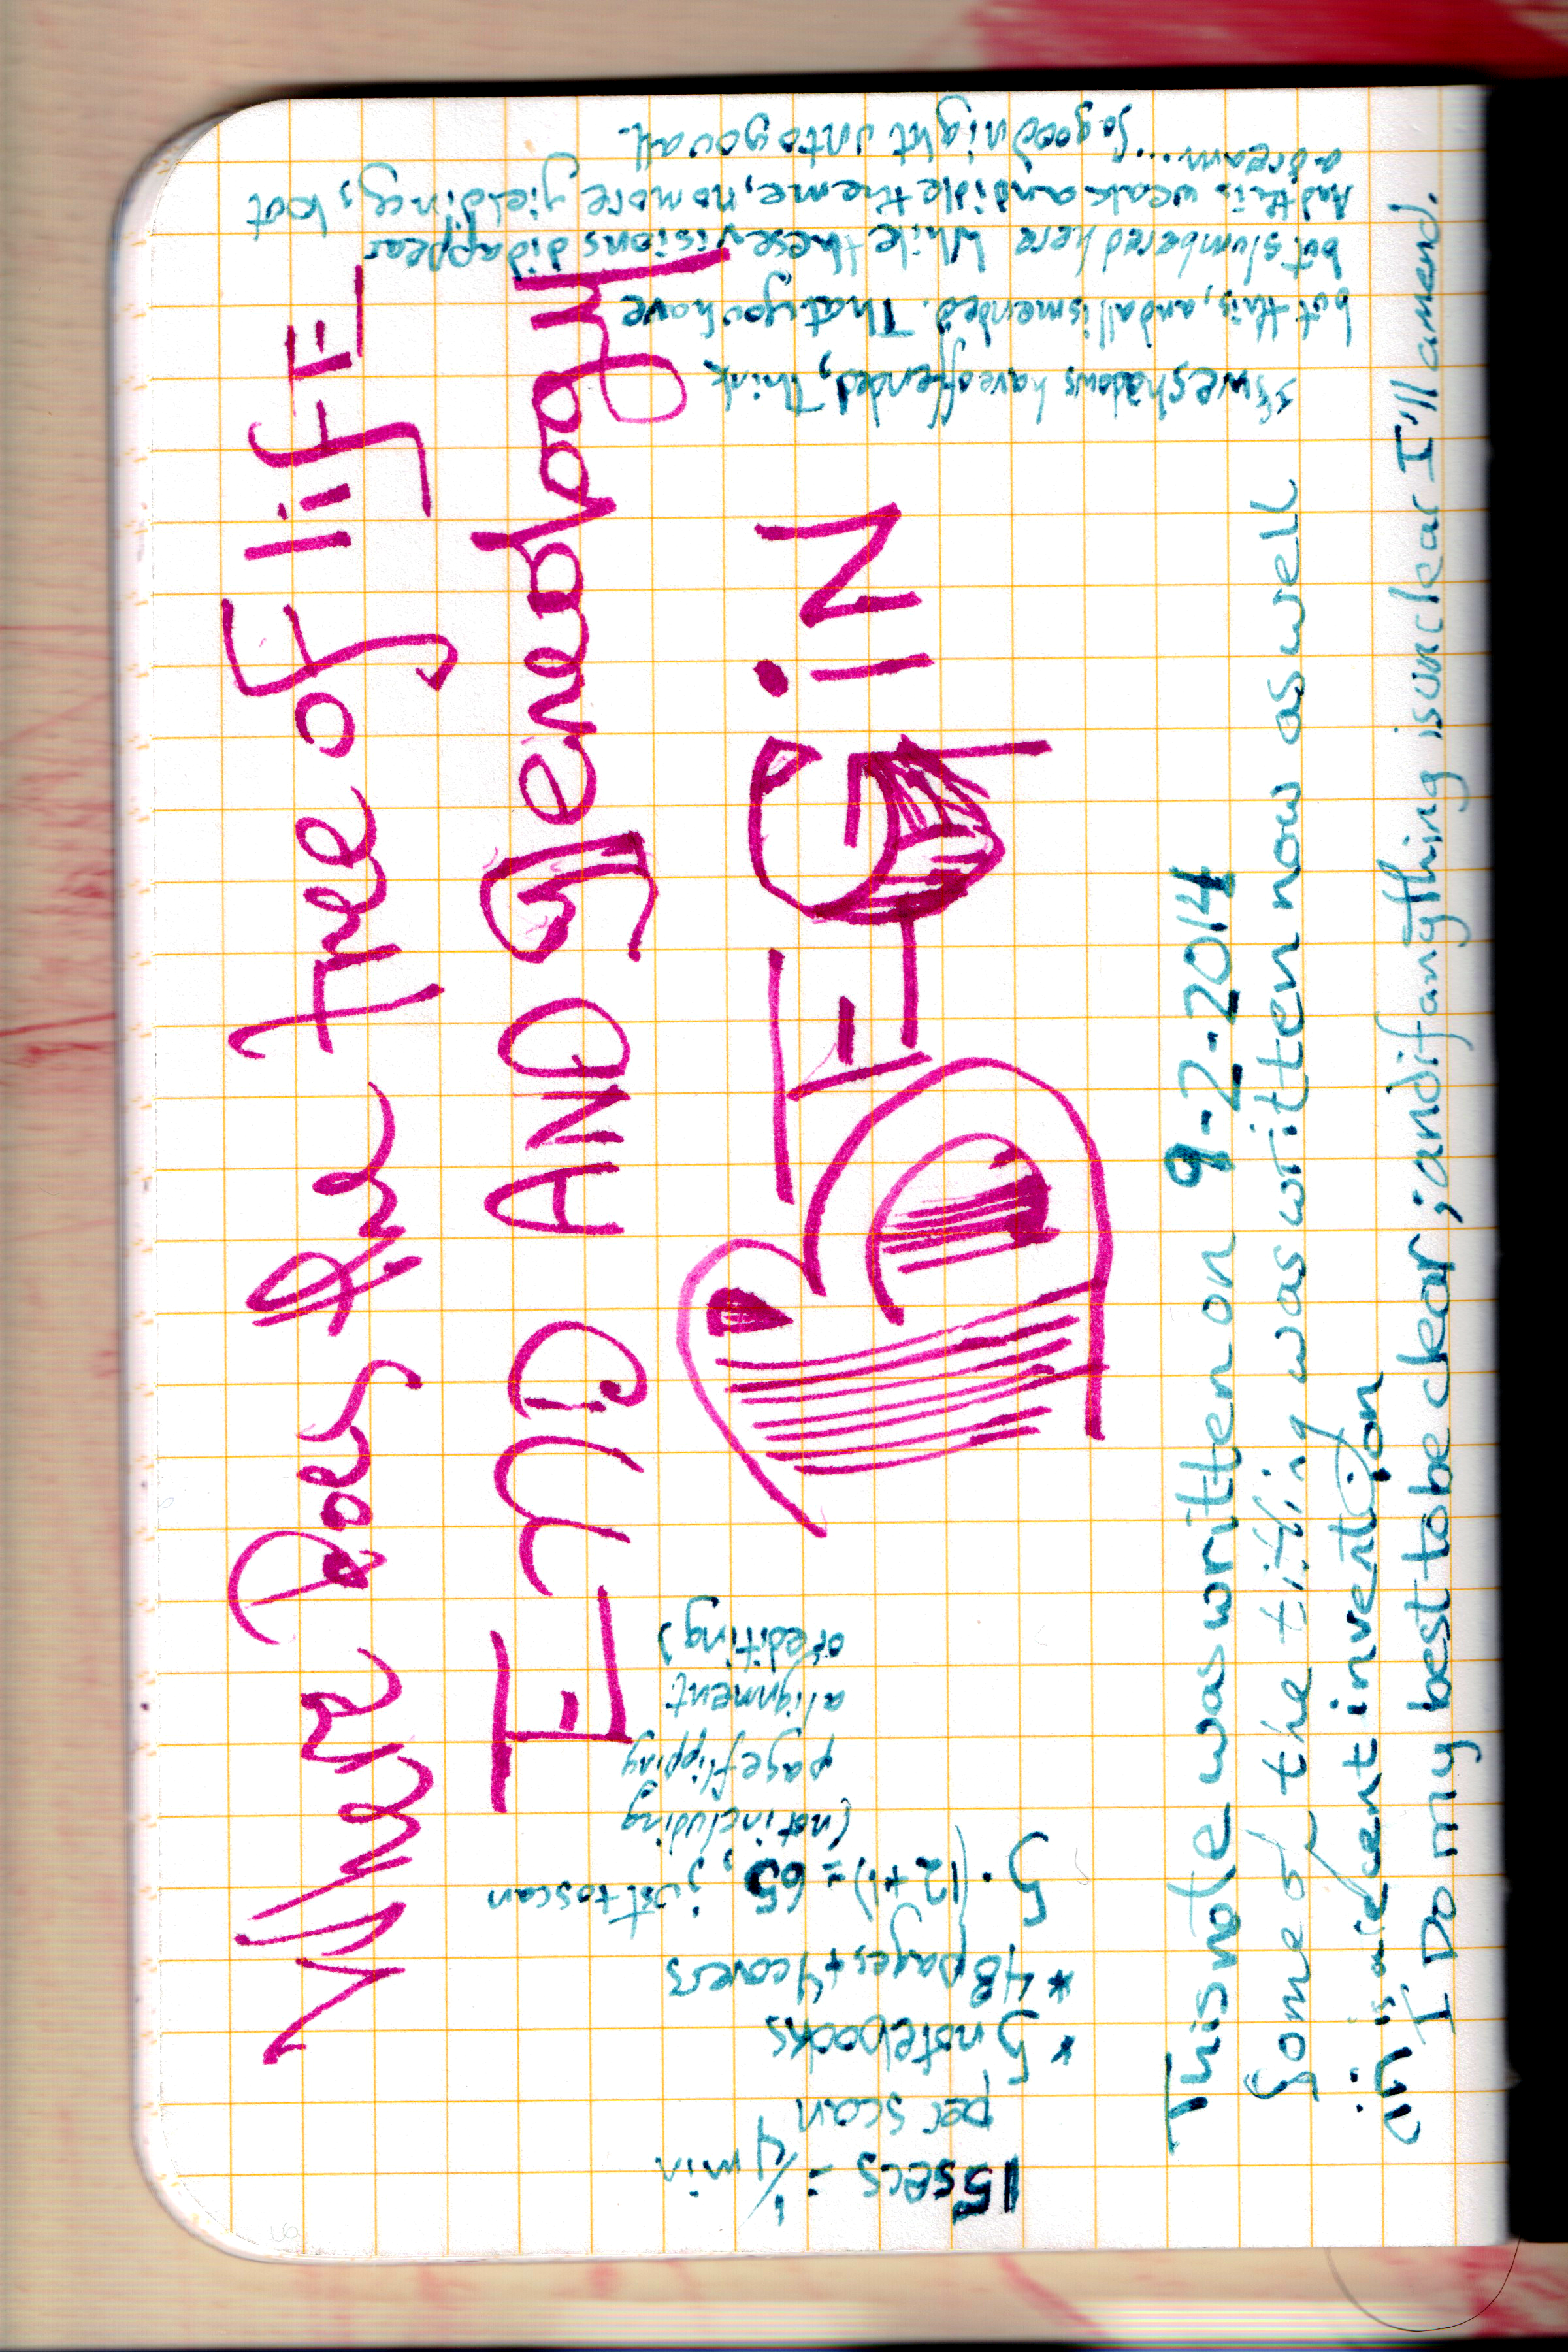 Where Does the tree of lifE
End AND genealogy
BEGiN
This note was written on 9-2-2014
Some of the titling was written now as well
is a recent invention
I Do my best to be clear; and if anything is unclear I'll amend.
15secs = 1/4 min
per scan
* 5 notebooks
* 48 pages + 4 covers
5·(12+1) = 65, just to scan
(not including
page flipping
alignment
or editing)
If we shadows have offended, Think
but this, and all is mended. That you have
but slumbered here While these visions did appear
And this weak and idle theme, no more yielding, but
a dream.... So good night unto you all.